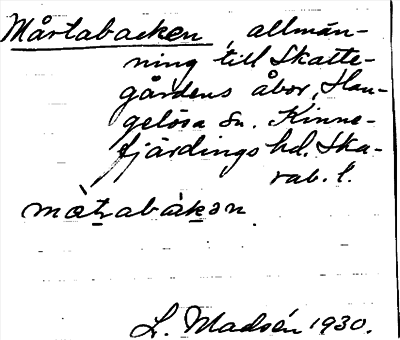 Mårtabacken, allmän-
ning till Skatte-
gårdens åbor, Han-
gelösa sn. Kinne-
fjärdings hd. Ska-
rab. l.
mœ̀t̠abàk̠ən.
L. Madsén 1930.